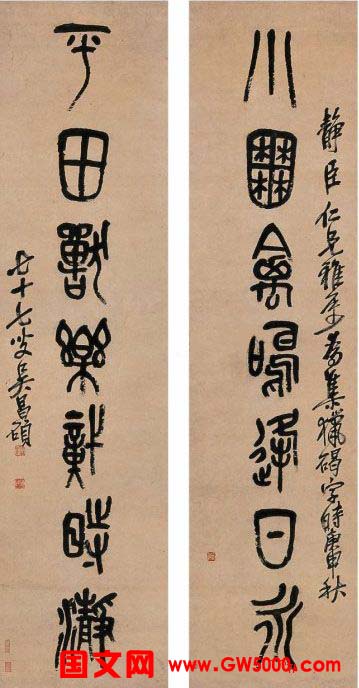 小囿禽鳴逢日永
靜臣仁兄雅屬為集獵碣字時庚申秋
平田獸樂時
七十七叟吳昌碩
国文网 www.GW5000.com